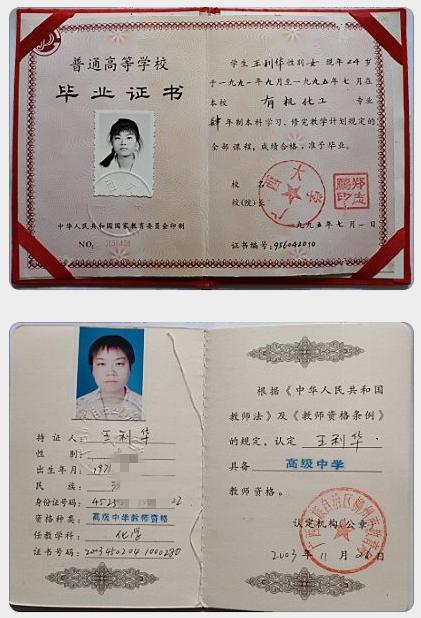 普通高等学校
毕业证书
中华人民共和国国家教育委员会印制
NO:
学生 王利华 性别 女 现年 24 岁
于一九九一年九月至一九九五年七月在
本校 有机化工 专业
肆年制本科学习,修完教学计划规定的
全部课程,成绩合格,准予毕业。
校 名
校(院)长
广西大学
一九九五年七月一日
证书编号:956042010
持 证 人: 王利华
性 别:
出生年月: 1971
民 族: 汉
身份证号码: 4525 22
资格种类: 高级中学教师资格
任教学科: 化学
证书号码: 2003450204 1000280
根据《中华人民共和国
教师法》及《教师资格条例》
的规定,认定 王利华
具备 高级中学
教师资格。
认定机构(公章)
2003 年 11 月 26 日